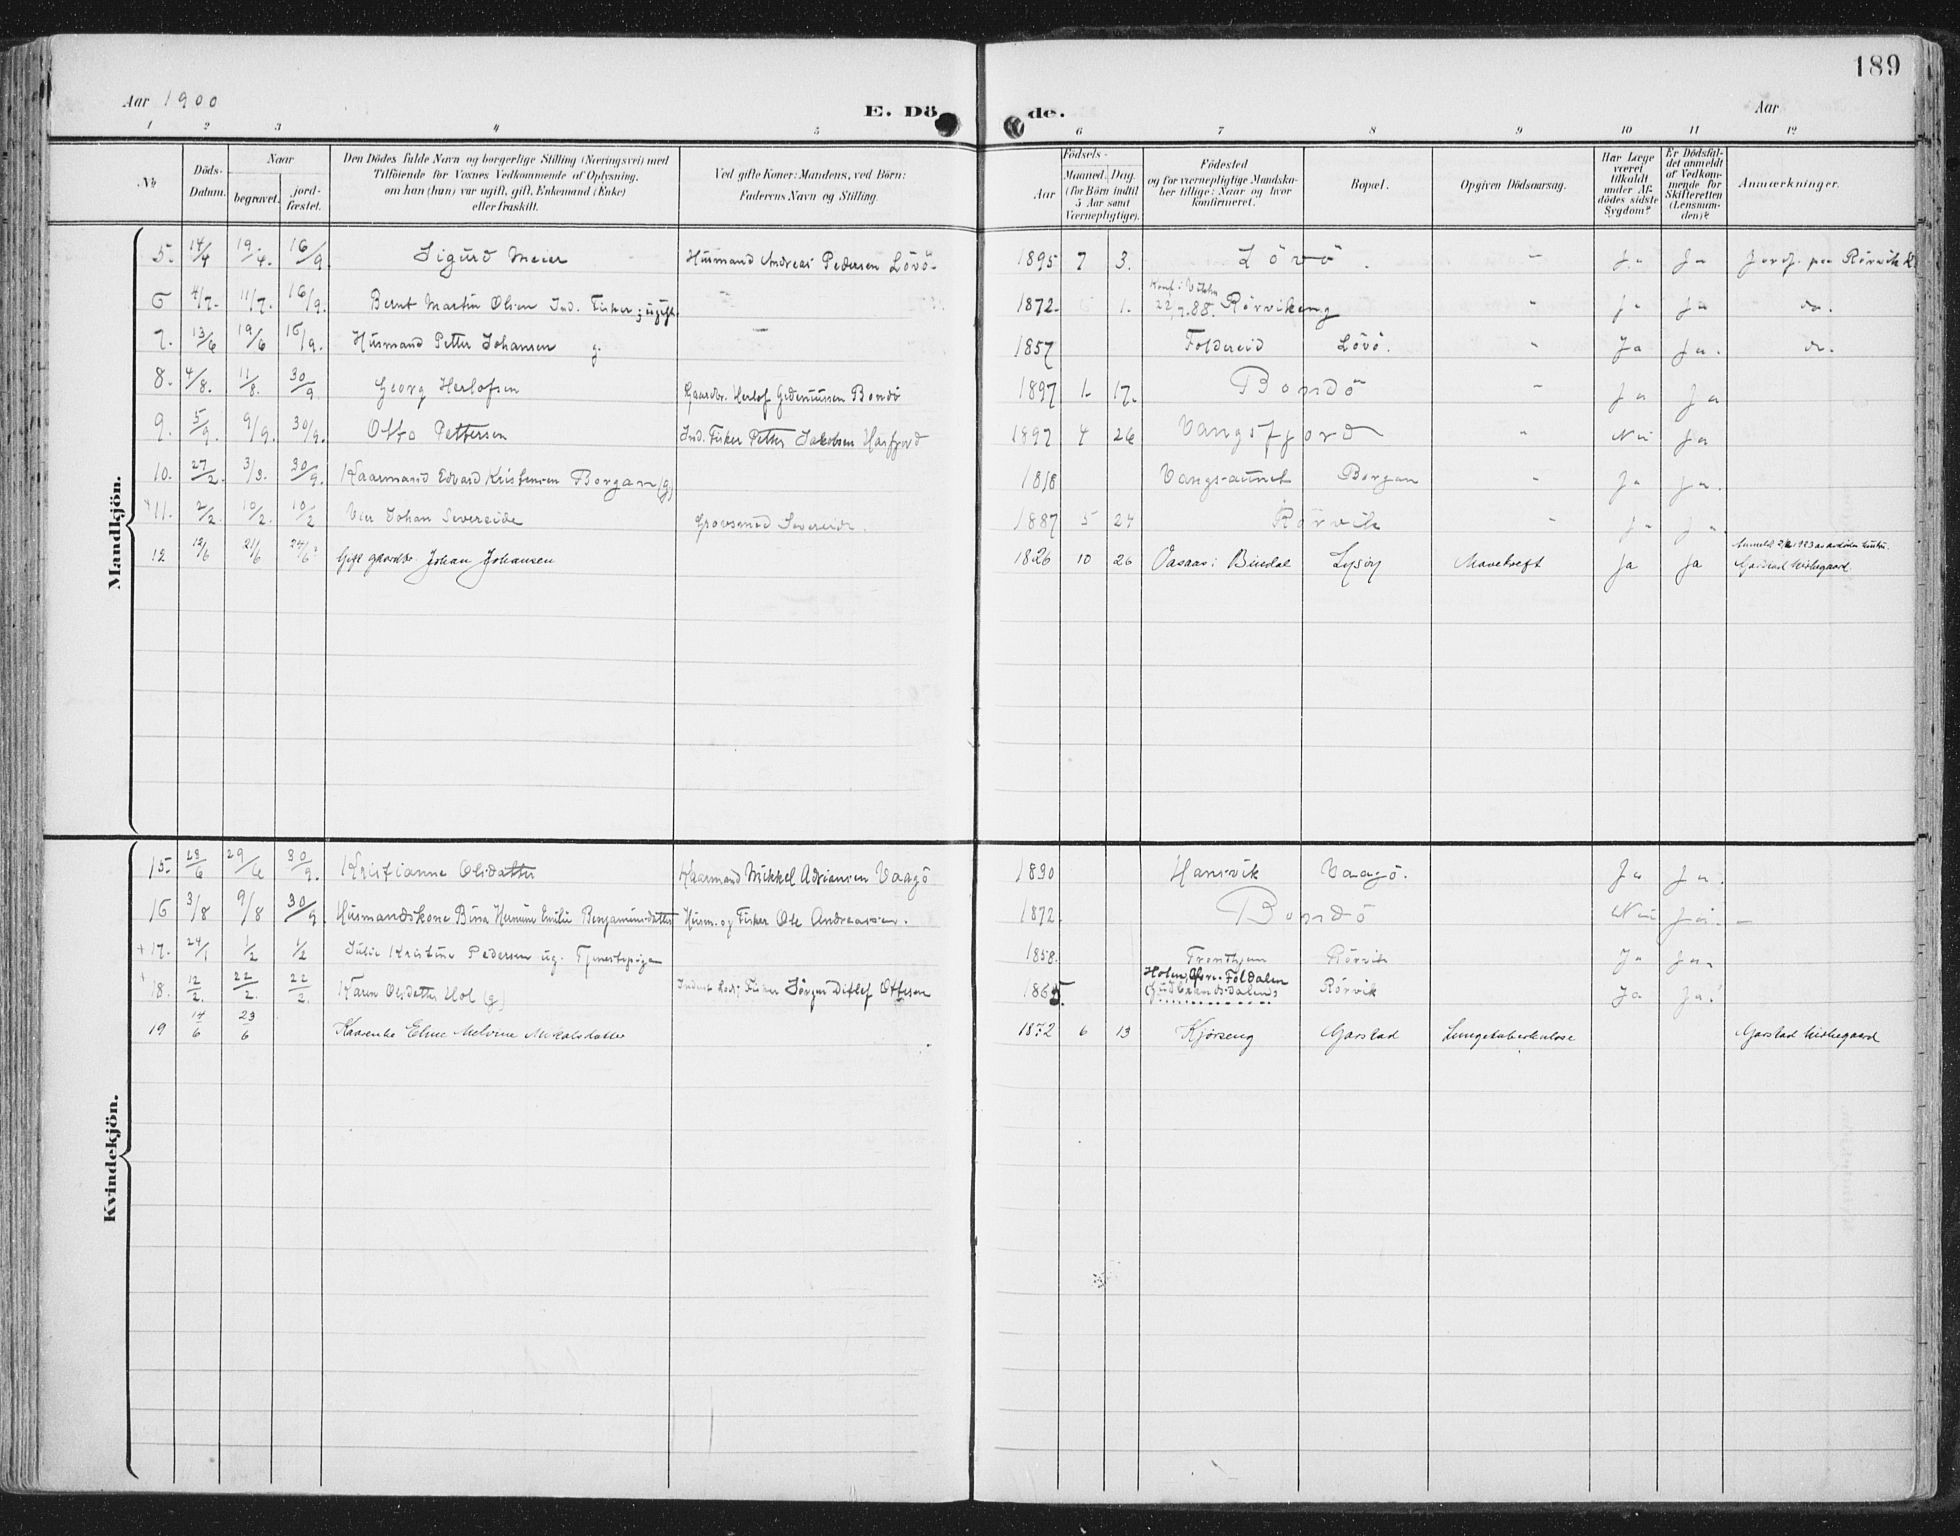 189
Aar 1900
E. Dö de.
Aar
1 2 3 4 5 6 7 8 9 10 11 12
No
Döds-Datum.
Naar
begravet.
jord-fæstet.
Den Dödes fulde Navn og borgerlige Stilling (Næringsvei) med
Tilföiende for Voxnes Vedkommende af Oplysning,
om han (hun) var ugift, gift, Enkemand (Enke)
eller fraskilt.
Ved gifte Koner: Mandens, ved Börn:
Faderens Navn og Stilling.
Födsels-
Aar
Maaned. Dag.
(for Börn indtil
5 Aar samt
Værnepligtige).
Födested
og for værnepligtige Mandska-
ber tillige: Naar og hvor
konfirmeret.
Bopæl.
Opgiven Dödsaarsag.
Har Læge
været
tilkaldt
under Af-
dödes sidste
Sygdom?
Er Dödsfal-
det anmeldt
af Vedkom-
mende for
Skifteretten
(Lensman-
den)?
Anmærkninger.
Mandkjön.
5. 14/4 19/4. 16/9 Sigurd Meier Husmand Andreas Pedersen Lövö 1895 7 3. Lövö " Ja Ja Jordf. paa Rörvik K.
6 4/7. 11/7. 16/9. Bernt Martin Olsen Ind. Fisker; ugift. 1872. 1. Konf. i 22/7.88. Rørvikeng " Ja Ja do.
7. 13/6 19/6 16/9. Husmand Petter Johansen g. 1857 Foldereid Lövö. " Ja Ja. do.
8. 4/8. 11/8. 30/9 Georg Herlofsen Gaardbr. Herlof Gederiussen Bondö 1897 1 17. Bondö " Ja Ja
9. 5/9. 9/9. 30/9. Otto Pettersen Ind. Fisker Petter Jakobsen 1897 4 26 Vangsfjord " Nei Ja
10. 27/2. 3/3. 30/9. Kaarmand Edvard Kristensen Borgan (g) 1818 Vangsaunet Borgan " Ja Ja.
11. 2/2. 10/2. 10/2 Johan Severeide Grovsmed Severeide. 1887 5 27 Rörvik " Ja Ja.
12 12/6 21/6 24/6? Gift gaardbr. Johan Johansen 1826 10 26 Aasaas i Bindal Lysøy Mavekreft Ja Ja Garstad kirkegaard.
Kvindekjön.
15. 23/6 29/6 30/9. Kristianne Olsdatter Kaarmand Mikkel Adriansen Vaagö 1830 Hansvik Vaagö. Ja Ja.
16 3/8 9/8 30/9. Husmandskone Bina Hermine Emilie Benjaminsdatter Husm. og Fisker Ole Andreassen. 1872. Bondö Nei Ja. -
+17. 24/1 1/2 1/2 Julie Kristine Pedersen ug. Tjenestepige 1858. Tronhjem Rörvik Ja Ja.
18. 12/2. 22/2. 22/2. Karen Olsdatter Hol (g) Fisker Jörgen Ditlef Ottesen 1865. Holen, Foldalen Gudbrandsdalens Rörvik Ja Ja.
19 14/6 23/6 Kaarenke Eline Melvine Mikalsdatter 1872 6 13 Kjørseng Garstad Lungetuberkulose Garstad kirkegaard